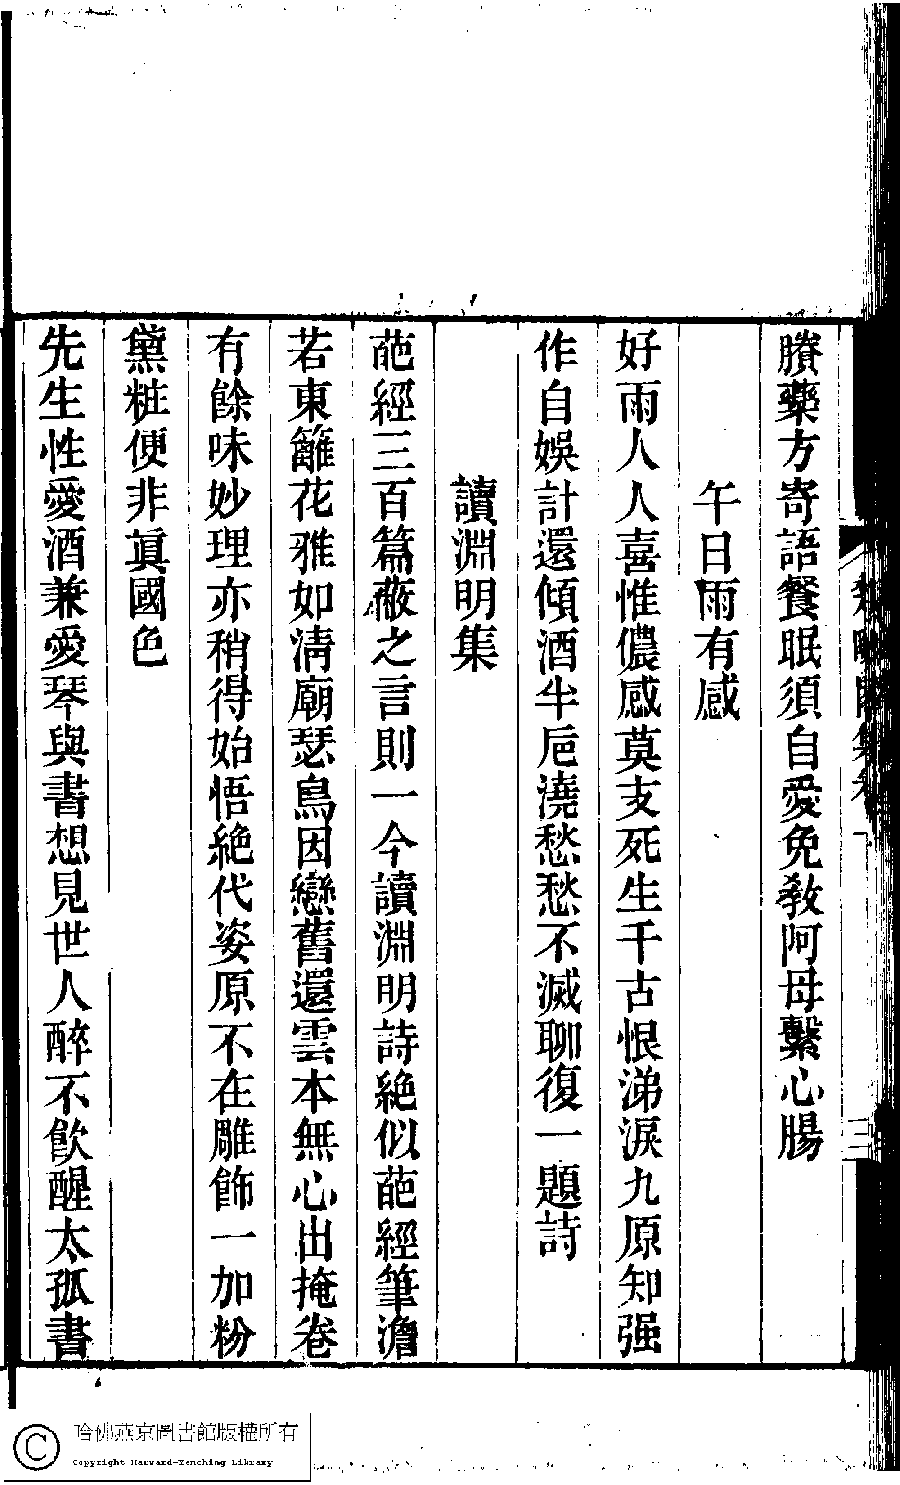 賸藥方寄語餐眠須自愛免敎阿母繫心腸
午日雨有感
好雨人人喜惟儂感莫支死生千古恨涕淚九原知强
作自娛計還傾酒半巵澆愁愁不滅聊復一題詩
讀淵明集
葩經三百篇蔽之言則一今讀淵明詩絶似葩經筆澹
若東籬花雅如淸廟瑟鳥因戀舊還雲本無心出掩卷
有餘味妙理亦稍得始悟絶代姿原不在雕飾一加粉
黛粧便非眞國色
先生性愛酒兼愛琴與書想見世人醉不飮醒太孤書
哈佛燕京圖書館版權所有
Copyright Harvard-Yenching Library